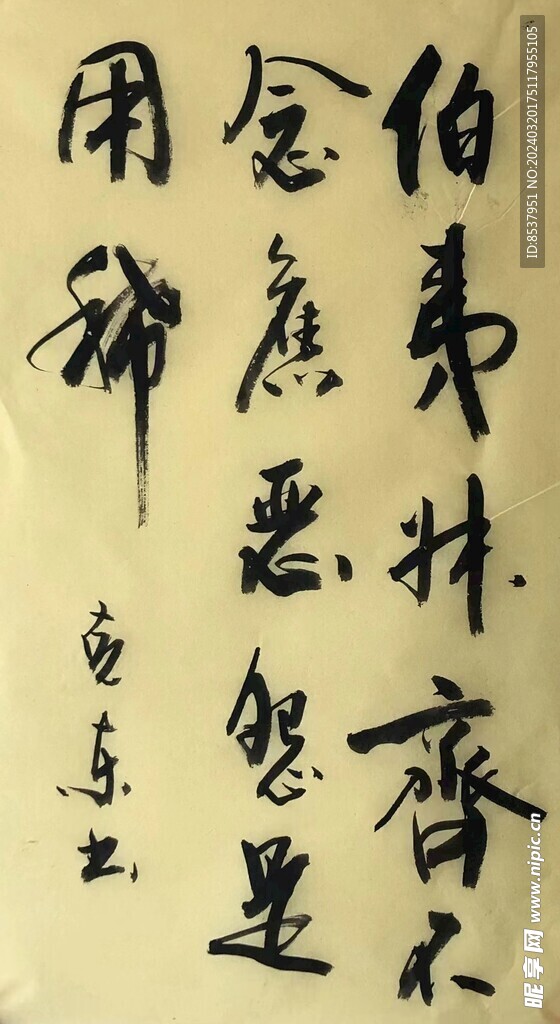 伯夷叔齊不
念舊惡怨是
用稀
克东书
ID:8537951 NO:20240320175117955105
昵享网 www.nipic.cn